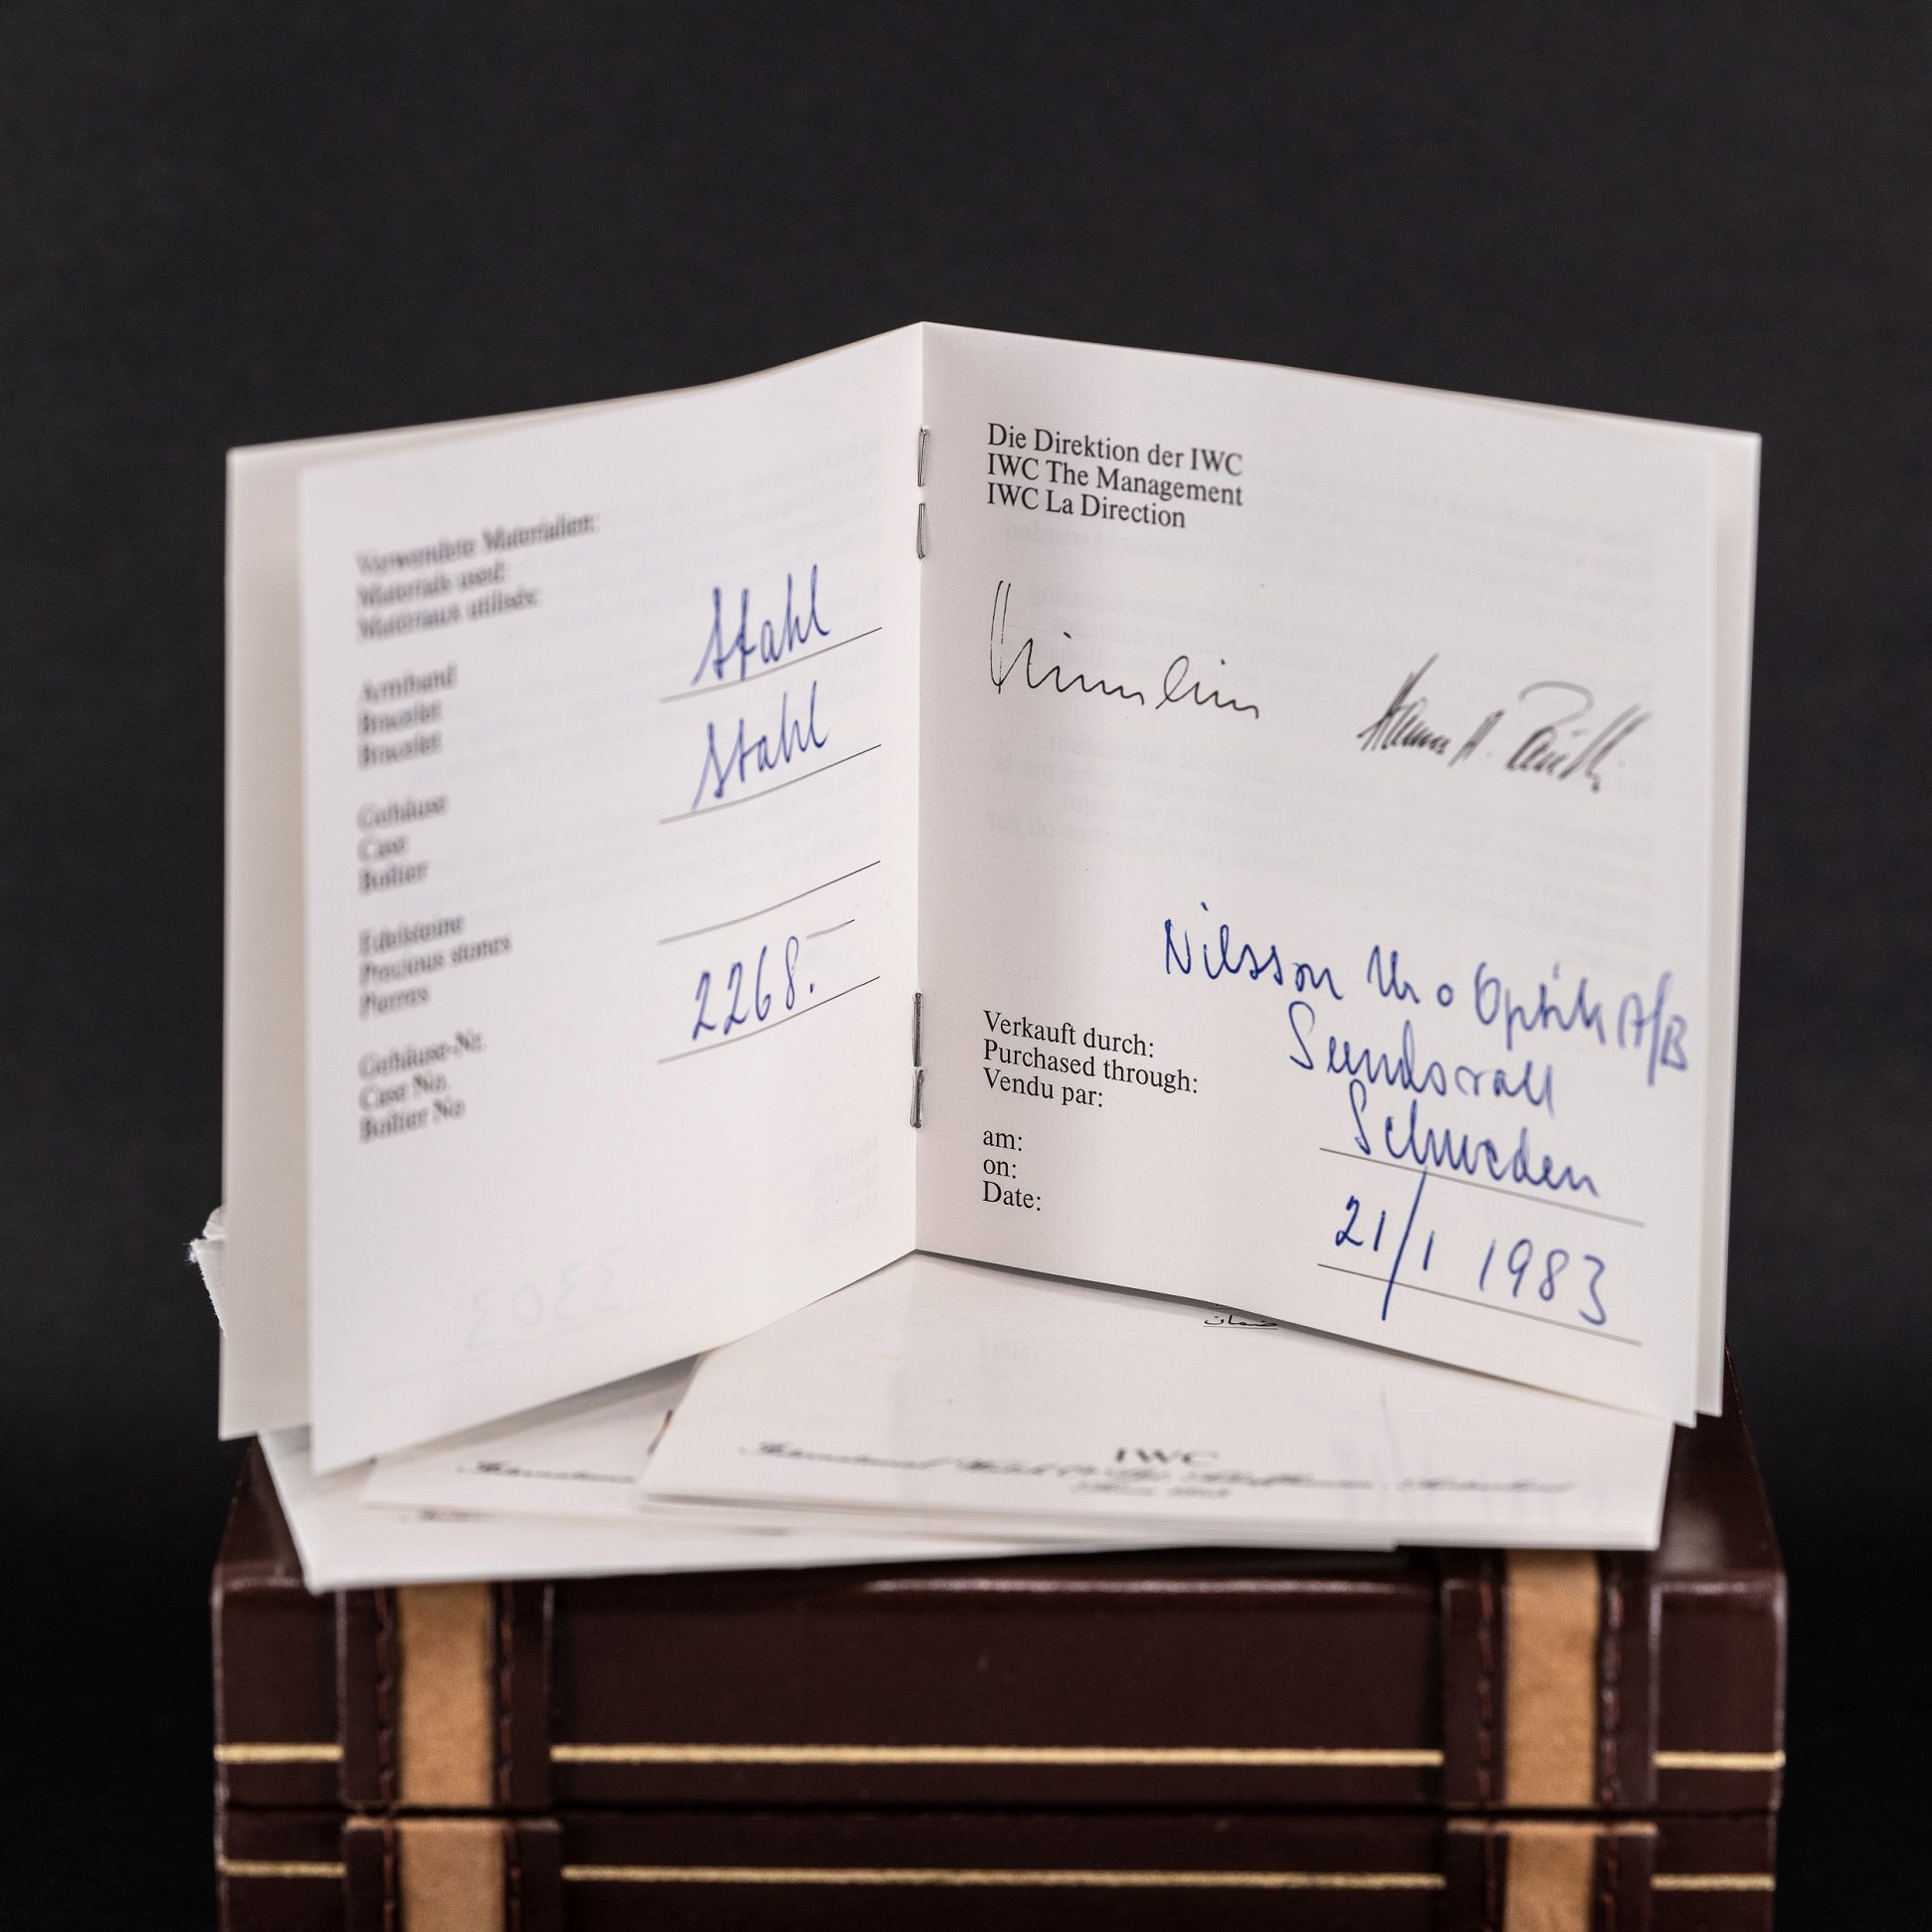 Verwendete Materialien:
Materials used:
Materiaux utilisés:
Armband
Bracelet
Bracelet
Stahl
Gehäuse
Case
Boîtier
Stahl
Edelsteine
Precious stones
Pierres
Gehäuse-Nr.
Case No.
Boîtier No
2268.
Die Direktion der IWC
IWC The Management
IWC La Direction
Verkauft durch:
Purchased through:
Vendu par:
Nilsson Ur o Optik A/B
Sundsvall
Schweden
am:
on:
Date:
21/1 1983
ضمان
IWC